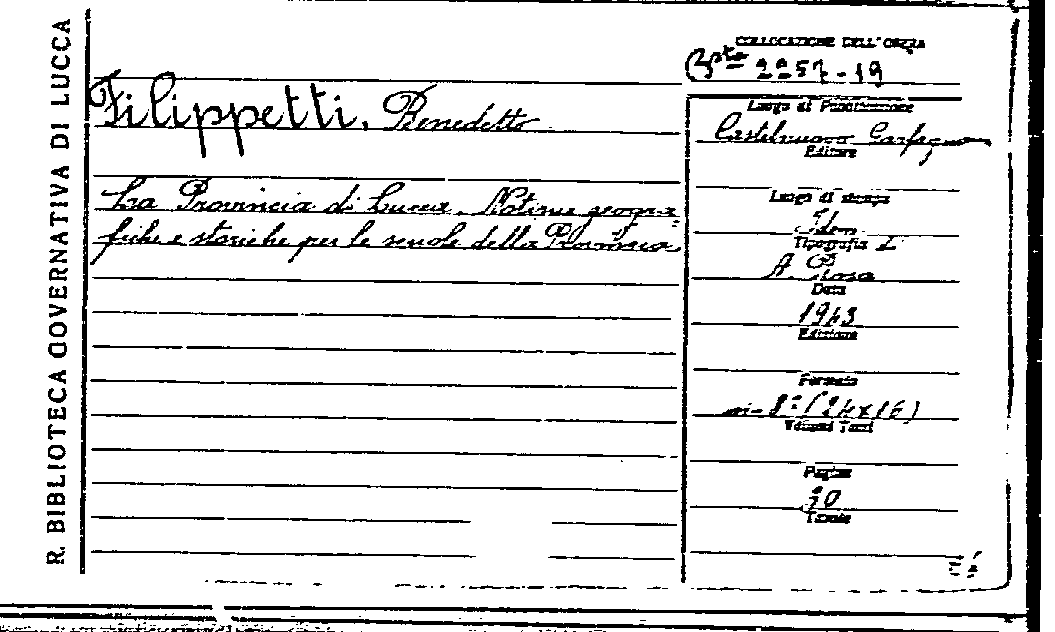 R. BIBLIOTECA GOVERNATIVA DI LUCCA
COLLOCAZIONE DELL'OPERA
Bsta 2257-19
Filippetti, Benedetto
La Provincia di Lucca. Notizie geogra
fiche e storiche per le scuole della Provincia.
Luogo di Pubblicazione
Castelnuovo Garfagn
Editore
Luogo di stampa
Idem
Tipografia
A. Rosa
Data
1943
Edizione
Formato
in-8° (24x16)
Volumi Tomi
Pagine
30
Tavole